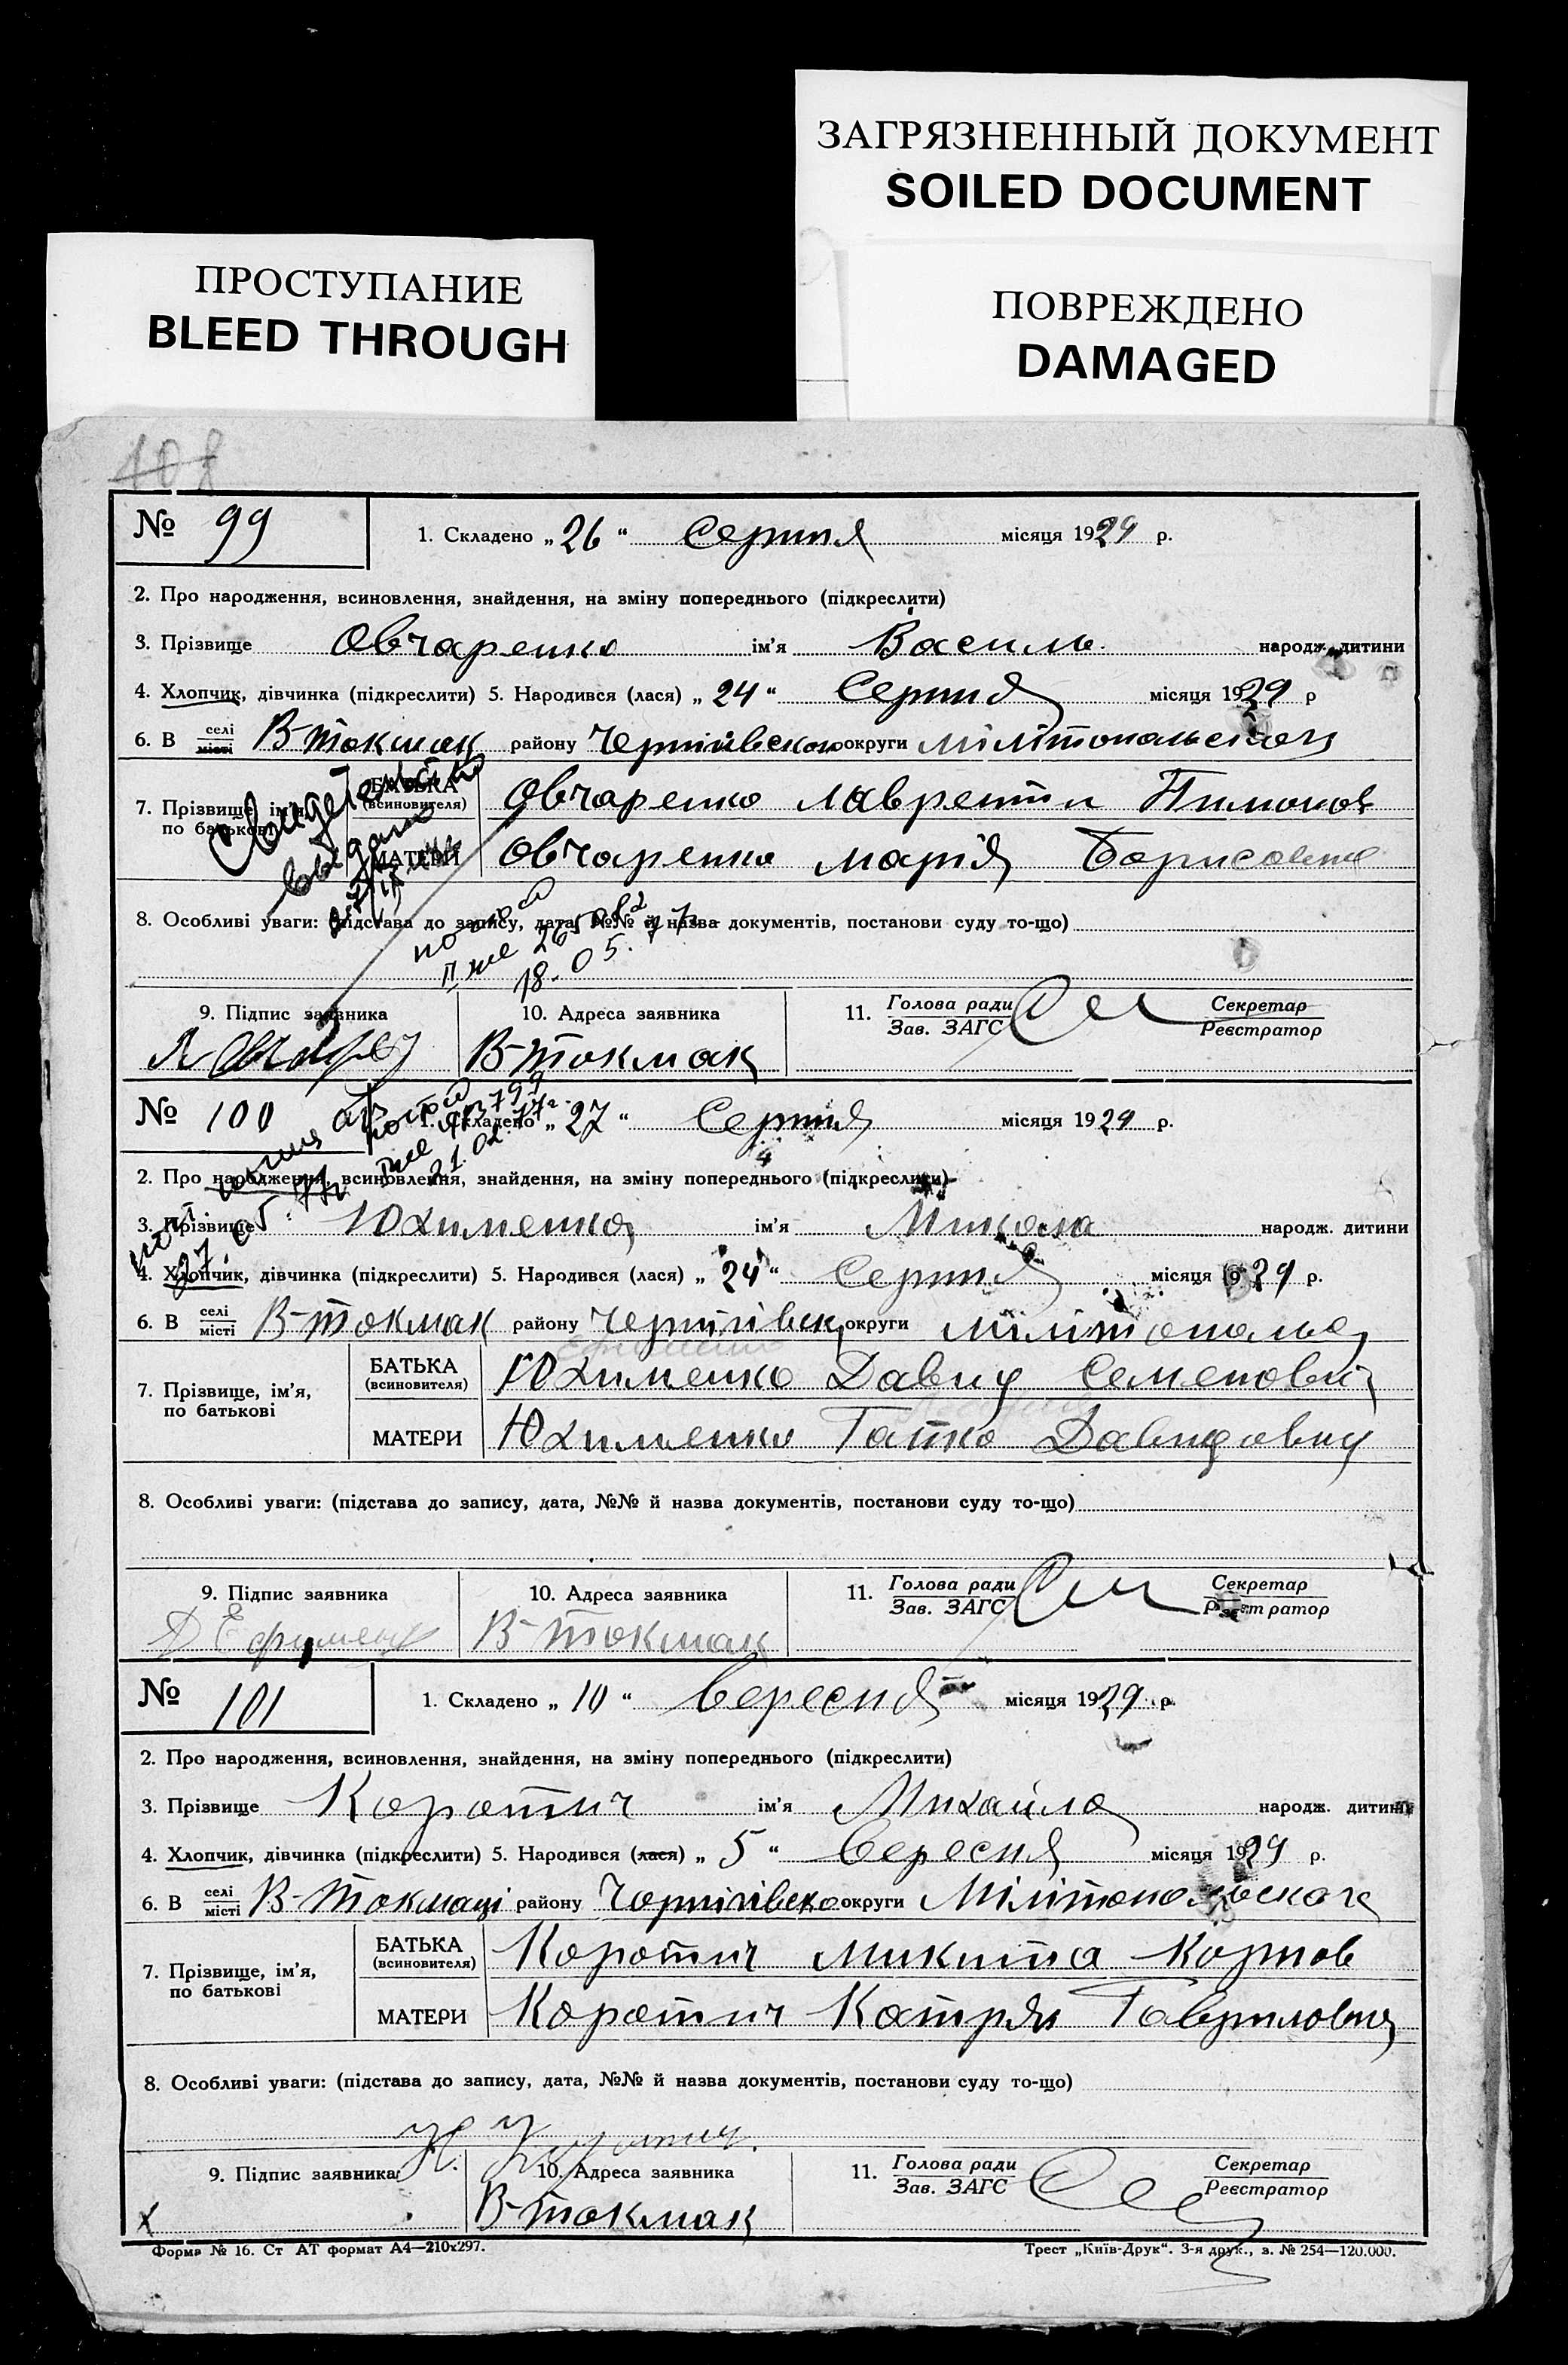 ЗАГРЯЗНЕННЫЙ ДОКУМЕНТ
SOILED DOCUMENT
ПРОСТУПАНИЕ
BLEED THROUGH
ПОВРЕЖДЕНО
DAMAGED
108
№ 99 1. Складено „ 26 “ Серпня місяця 1929 р.
2. Про народження, всиновлення, знайдення, на зміну попереднього (підкреслити)
3. Прізвище Овчаренко ім'я Василь народж. дитини
4. Хлопчик, дівчинка (підкреслити) 5. Народився (лася) „ 24 “ Серпня місяця 1929 р
6. В селі місті В-Токмак району Чернігівского округи Мілітопольского
Свидетельство
выдано
7. Прізвище, ім'я, по батькові
БАТЬКА (всиновителя) Овчаренко Лаврентій
МАТЕРИ Овчаренко Марія Борисовна
8. Особливі уваги: (підстава до запису, дата, №№ й назва документів, постанови суду то-що)
18.05.77
9. Підпис заявника 10. Адреса заявника 11. Голова ради Зав. ЗАГС Секретар Реєстратор
В-Токмак
№ 100 1. Складено „ 27 “ Серпня місяця 1929 р.
21.02.77г.
2. Про народження, всиновлення, знайдення, на зміну попереднього (підкреслити)
3. Прізвище Юхименко ім'я Микола народж. дитини
27.05.77
4. Хлопчик, дівчинка (підкреслити) 5. Народився (лася) „ 24 “ Серпня місяця 1929 р.
6. В селі місті В-Токмак району Чернігівск округи Мілітополь
7. Прізвище, ім'я, по батькові
БАТЬКА (всиновителя) Юхименко Давид Семенович
МАТЕРИ Юхименко Ганна Давидовна
8. Особливі уваги: (підстава до запису, дата, №№ й назва документів, постанови суду то-що)
9. Підпис заявника 10. Адреса заявника 11. Голова ради Зав. ЗАГС Секретар Реєстратор
Д Ефименко В-Токмак
№ 101 1. Складено „ 10 “ Вересня місяця 1929 р.
2. Про народження, всиновлення, знайдення, на зміну попереднього (підкреслити)
3. Прізвище Коротич ім'я Михайло народж. дитини
4. Хлопчик, дівчинка (підкреслити) 5. Народився (лася) „ 5 “ Вересня місяця 1929 р.
6. В селі місті В-Токмаці району Чернігівско округи Мілітопольского
7. Прізвище, ім'я, по батькові
БАТЬКА (всиновителя) Коротич Микита Корнов
МАТЕРИ Коротич Катрян Гавриловна
8. Особливі уваги: (підстава до запису, дата, №№ й назва документів, постанови суду то-що)
Н. Коротич.
9. Підпис заявника 10. Адреса заявника 11. Голова ради Зав. ЗАГС Секретар Реєстратор
х В-Токмак
Форма № 16. Ст АТ формат А4—210х297.
Трест „Київ-Друк“. 3-я друк., з. № 254—120.000.